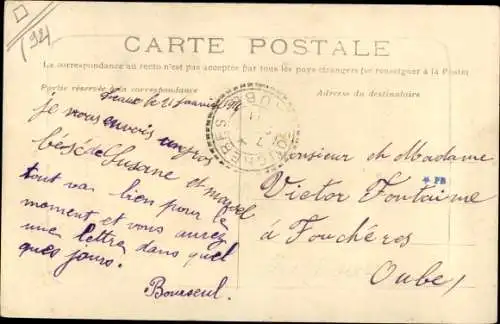 192
CARTE POSTALE
La correspondance au recto n'est pas acceptée par tous les pays étrangers (se renseigner à la Poste)
Partie réservée à la correspondance
Adresse du destinataire
le 21 janvier
je vous envois un gros
bésé de Susane et marcel
tout va bien pour le
moment et vous aurez
une lettre dans quel
ques jours.
Bourseul.
FOUCHERES
AUBE
Monsieur et Madame
Victor Fontaine
à Fouchères
Aube
* PB